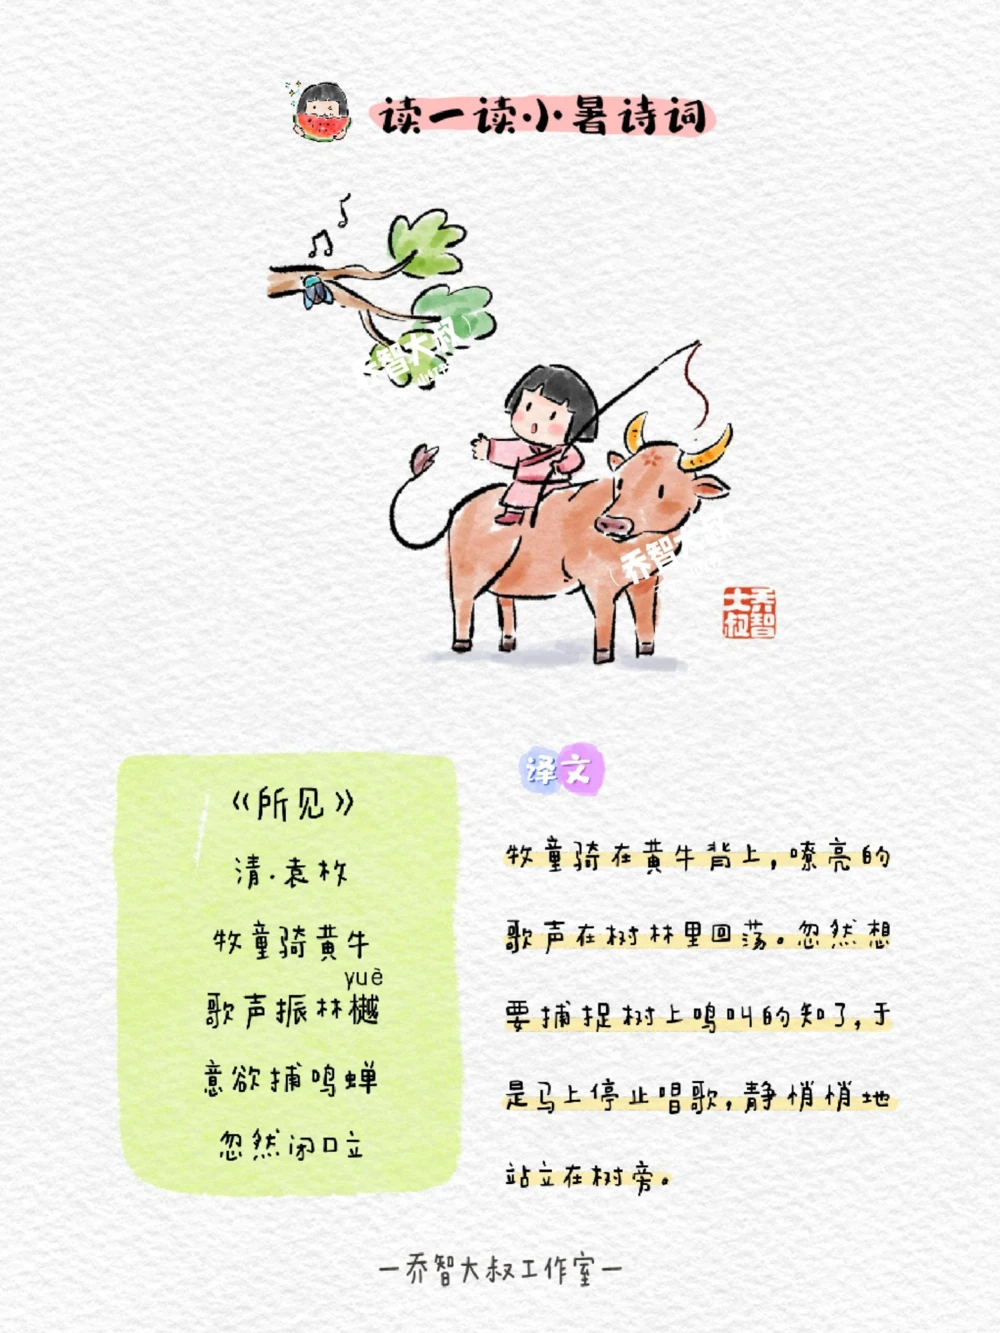 读一读·小暑诗词
乔智大叔
乔智大叔
乔智
大叔
《所见》
清·袁枚
牧童骑黄牛
yuè
歌声振林樾
意欲捕鸣蝉
忽然闭口立
译文
牧童骑在黄牛背上，嘹亮的
歌声在树林里回荡。忽然想
要捕捉树上鸣叫的知了，于
是马上停止唱歌，静悄悄地
站立在树旁。
—乔智大叔工作室—